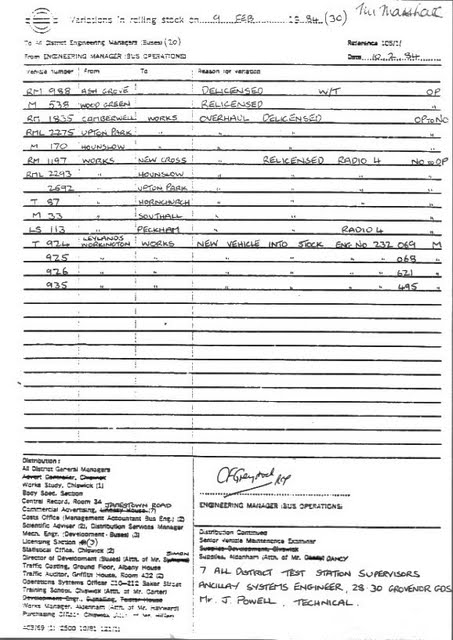 Tim Marshall
Variations in rolling stock on 9 FEB 1984 (30)
To All District Engineering Managers (Buses) (20)
Reference 105/1/
From ENGINEERING MANAGER (BUS OPERATIONS)
Date 10.2.84
Vehicle Number From To Reason for variation
RM 988 ASH GROVE DELICENSED W/T OP
M 538 WOOD GREEN RELICENSED "
RM 1835 CAMBERWELL WORKS OVERHAUL DELICENSED OP TO NO
RML 2275 UPTON PARK " " " "
M 170 HOUNSLOW " " " "
RM 1197 WORKS NEW CROSS " RELICENSED RADIO 4 NO TO OP
RML 2293 " HOUNSLOW " " "
2592 " UPTON PARK " " "
T 87 " HORNCHURCH " " "
M 33 " SOUTHALL " " "
LS 113 " PECKHAM " " RADIO 4 "
T 924 LEYLANDS WORKINGTON WORKS NEW VEHICLE INTO STOCK ENG NO 232 069 M
925 " " " " " 068 "
926 " " " " " 621 "
935 " " " " " 495 "
Distribution:
All District General Managers
Advert Controller, Chiswick
Works Study, Chiswick (1)
Body Spec. Section
Central Record, Room 3A JAMESTOWN ROAD
Commercial Advertising,
Costs Office (Management Accountant Bus Eng.) (2)
Scientific Adviser (2), Distribution Services Manager
Mech. Engr. (Development - Buses) (3)
Licensing Section
Statistical Office, Chiswick (2)
Director of Development (Buses) (Attn. of Mr.
Traffic Costing, Ground Floor, Albany House
Traffic Auditor, Griffith House, Room 422 (2)
Operations Systems Officer Baker Street
Training School, Chiswick (Attn. of Mr. Carter)
Works Manager, Aldenham (Attn. of Mr.
Purchasing Officer
ENGINEERING MANAGER (BUS OPERATIONS)
Distribution Continued
Senior Vehicle Maintenance Examiner
Supplies Development, Chiswick
Supplies, Aldenham (Attn. of Mr. DANCY)
7 ALL DISTRICT TEST STATION SUPERVISORS
ANCILLARY SYSTEMS ENGINEER, 28-30 GROVENOR GDS
Mr. J. POWELL, TECHNICAL.